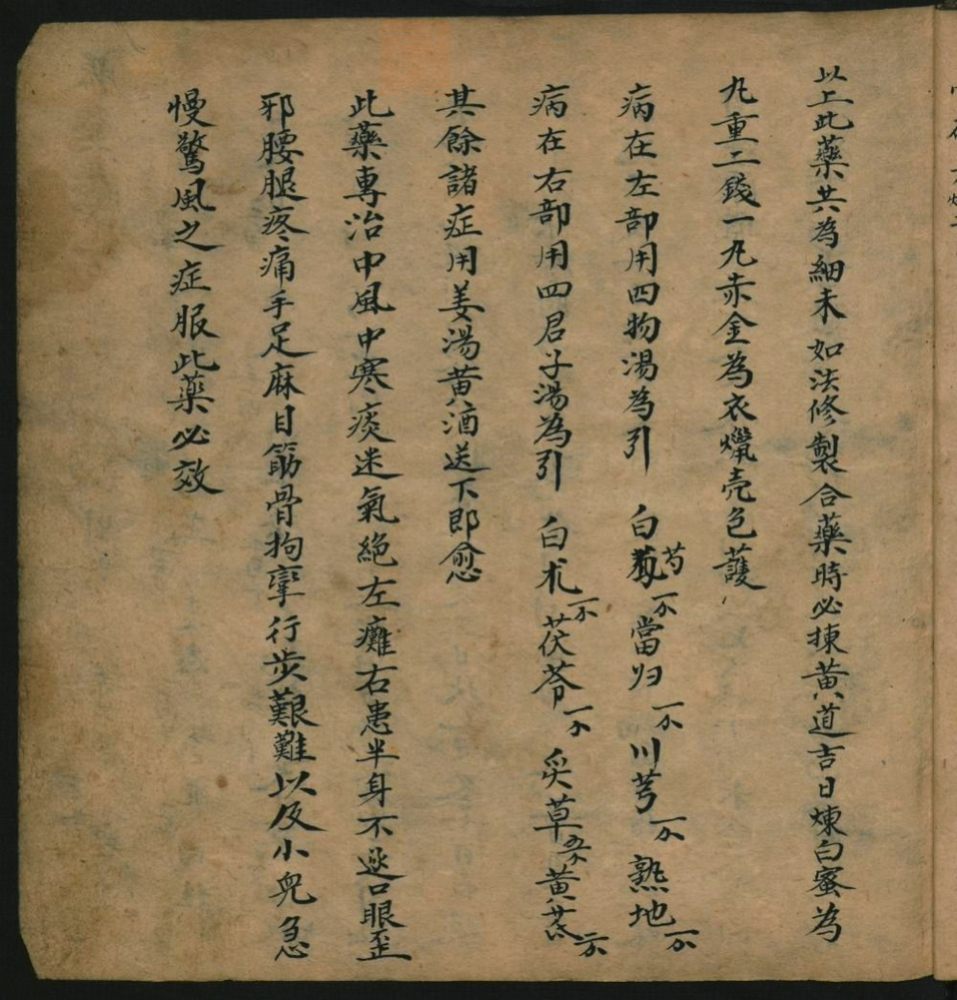 以上此藥共為細末如法修製合藥時必揀黃道吉日煉白蜜為
丸重二錢一丸赤金為衣爦壳包護
病在左部用四物湯為引 白芍一分當归一分川芎一分熟地一分
病在右部用四君子湯為引 白朮一分茯苓一分炙草五分黃茋一分
其餘諸症用姜湯黃酒送下即愈
此藥專治中風中寒痰迷氣絕左癱右患半身不遂口眼歪
邪腰腿疼痛手足麻目筋骨拘孿行步艱難以及小兒急
慢驚風之症服此藥必效